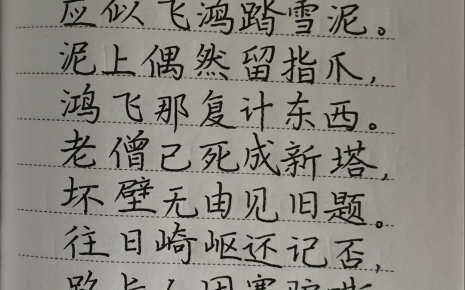 应似飞鸿踏雪泥。
泥上偶然留指爪,
鸿飞那复计东西。
老僧已死成新塔,
坏壁无由见旧题。
往日崎岖还记否,
路长人困蹇驴嘶